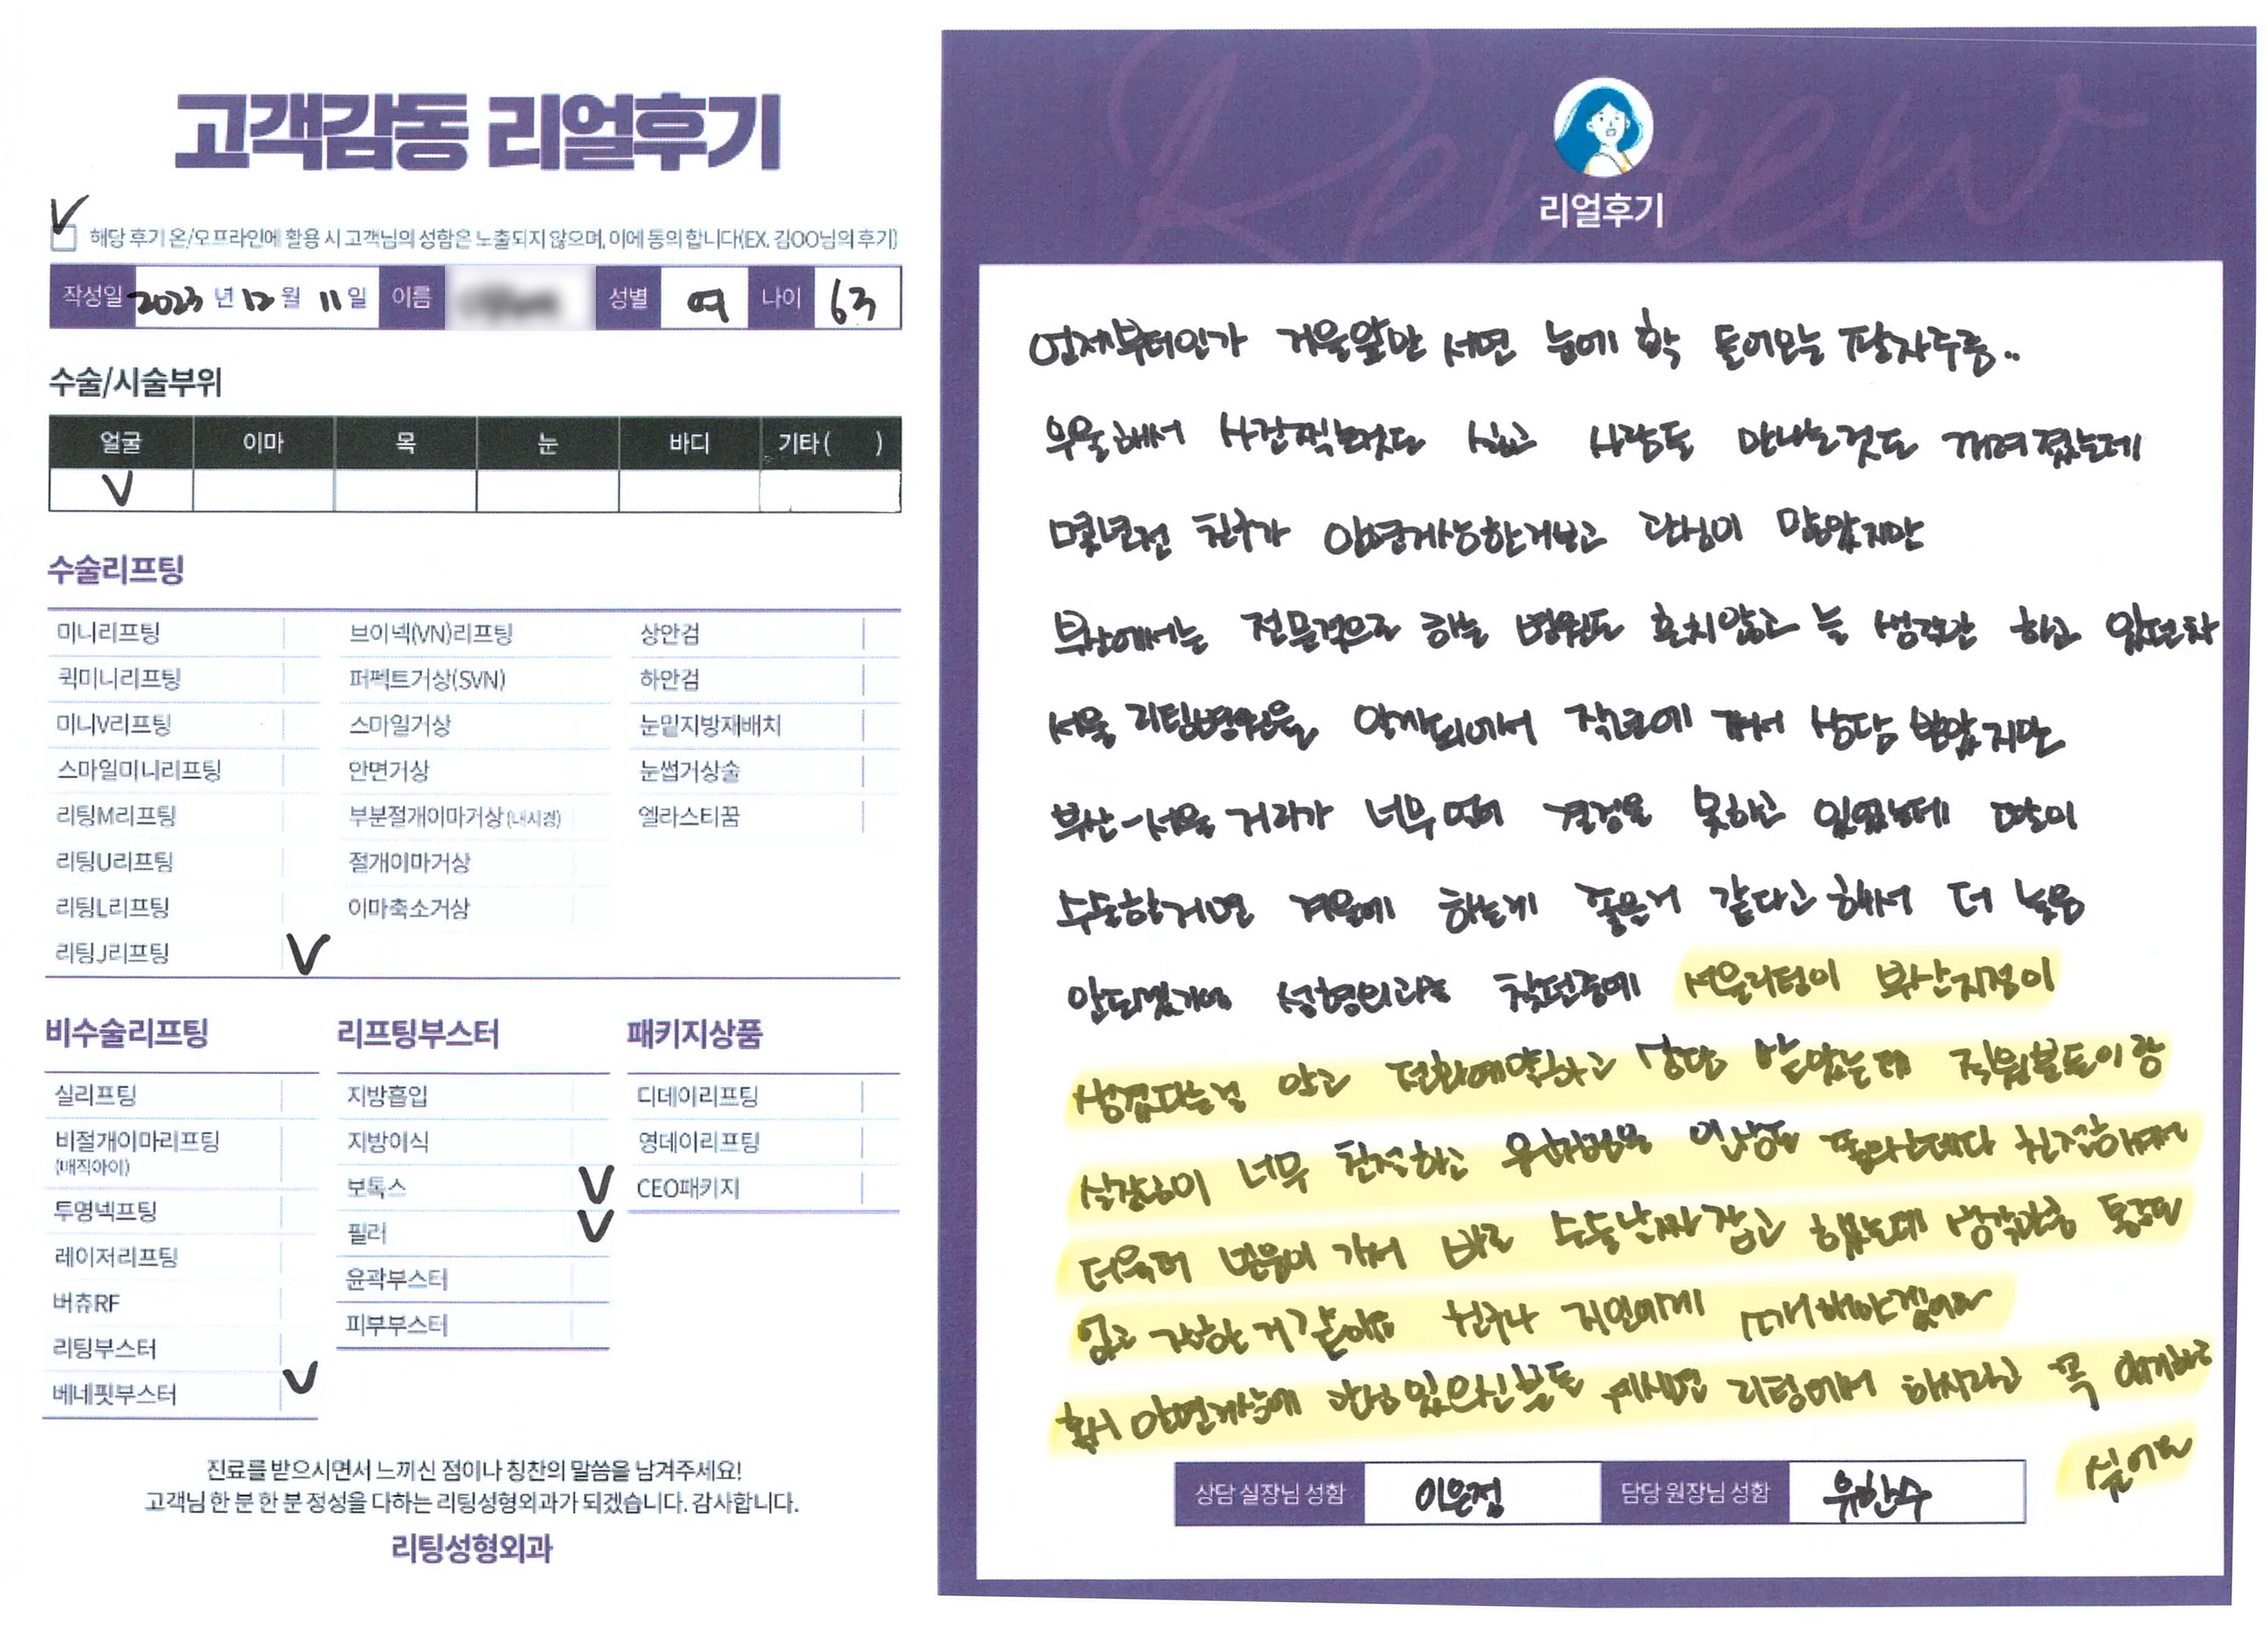 고객감동 리얼후기
해당 후기 온/오프라인에 활용 시 고객님의 성함은 노출되지 않으며, 이에 동의 합니다(EX. 김OO님의 후기)
작성일 2023 년 12 월 11 일 이름 성별 여 나이 63
수술/시술부위
얼굴 이마 목 눈 바디 기타 ( )
수술리프팅
미니리프팅 브이넥(VN)리프팅 상안검
퀵미니리프팅 퍼펙트거상(SVN) 하안검
미니V리프팅 스마일거상 눈밑지방재배치
스마일미니리프팅 안면거상 눈썹거상술
리팅M리프팅 부분절개이마거상(내시경) 엘라스티꿈
리팅U리프팅 절개이마거상
리팅L리프팅 이마축소거상
리팅J리프팅
비수술리프팅 리프팅부스터 패키지상품
실리프팅 지방흡입 디데이리프팅
비절개이마리프팅 지방이식 영데이리프팅
(매직아이)
보톡스 CEO패키지
투명넥프팅 필러
레이저리프팅 윤곽부스터
버츄RF 피부부스터
리팅부스터
베네핏부스터
진료를 받으시면서 느끼신 점이나 칭찬의 말씀을 남겨주세요!
고객님 한 분 한 분 정성을 다하는 리팅성형외과가 되겠습니다. 감사합니다.
리팅성형외과
Review
리얼후기
언제부터인가 거울앞만 서면 눈에 확 들어오는 팔자주름..
우울해서 사진찍는것도 싫고 사람들 만나는것도 꺼려졌는데
몇년전 친구가 안면거상한거보고 관심이 많았지만
부산에서는 전문적으로 하는 병원도 흔치않고 늘 생각만 하고 있던차
서울 리팅병원을 알게되어서 작년에 가서 상담 받았지만
부산-서울 거리가 너무 멀어 결정을 못하고 있었는데 딸이
수술할거면 겨울에 하는게 좋은거 같다고 해서 더 늦음
안되겠기에 성형외과를 찾던중에 서울리팅이 부산지점이
생겼다는걸 알고 전화예약하고 상담 받았는데 직원분들이랑
실장님이 너무 친절하고 유원장님은 인상도 좋으신데다 친절하셔서
더욱더 믿음이 가서 바로 수술날짜 잡고 했는데 생각만큼 통증도
없고 잘한거 같아요 친구나 지인에게 소개해야겠어요
혹시 안면거상에 관심 있으신분들 계시면 리팅에서 하시라고 꼭 얘기하고
싶어요
상담 실장님 성함 이은정 담당 원장님 성함 유한수